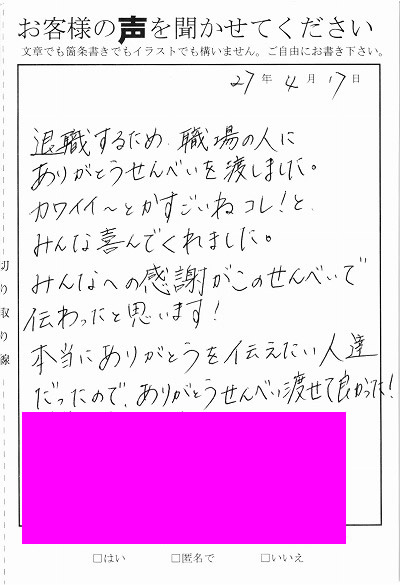 お客様の声を聞かせてください
文章でも箇条書きでもイラストでも構いません。ご自由にお書き下さい。
27年4月17日
退職するため、職場の人に
ありがとうせんべいを渡しました。
カワイイ〜とかすごいねコレ!と、
みんな喜んでくれました。
みんなへの感謝がこのせんべいで
伝わったと思います!
本当にありがとうを伝えたい人達
だったので、ありがとうせんべい渡せて良かった!
切り取り線
□はい □匿名で □いいえ